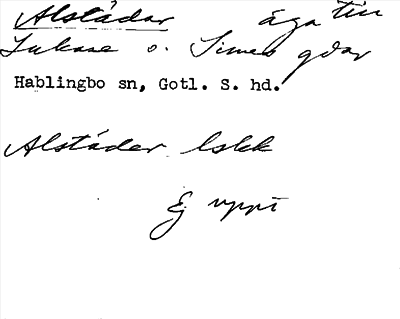 Alstädar äga till
Lukase o. Simes gdar
Hablingbo sn, Gotl. S. hd.
Alstäder lskk
Ej uppt